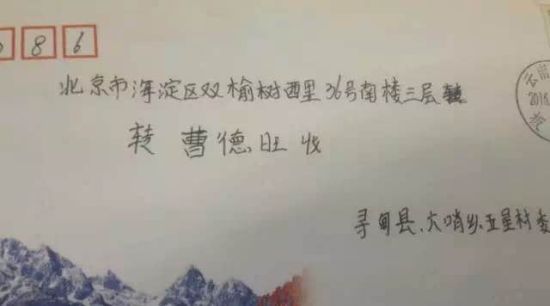 086
北京市海淀区双榆树西里36号南楼三层
转 曹德旺 收
寻甸县、六哨乡、五星村委
2016